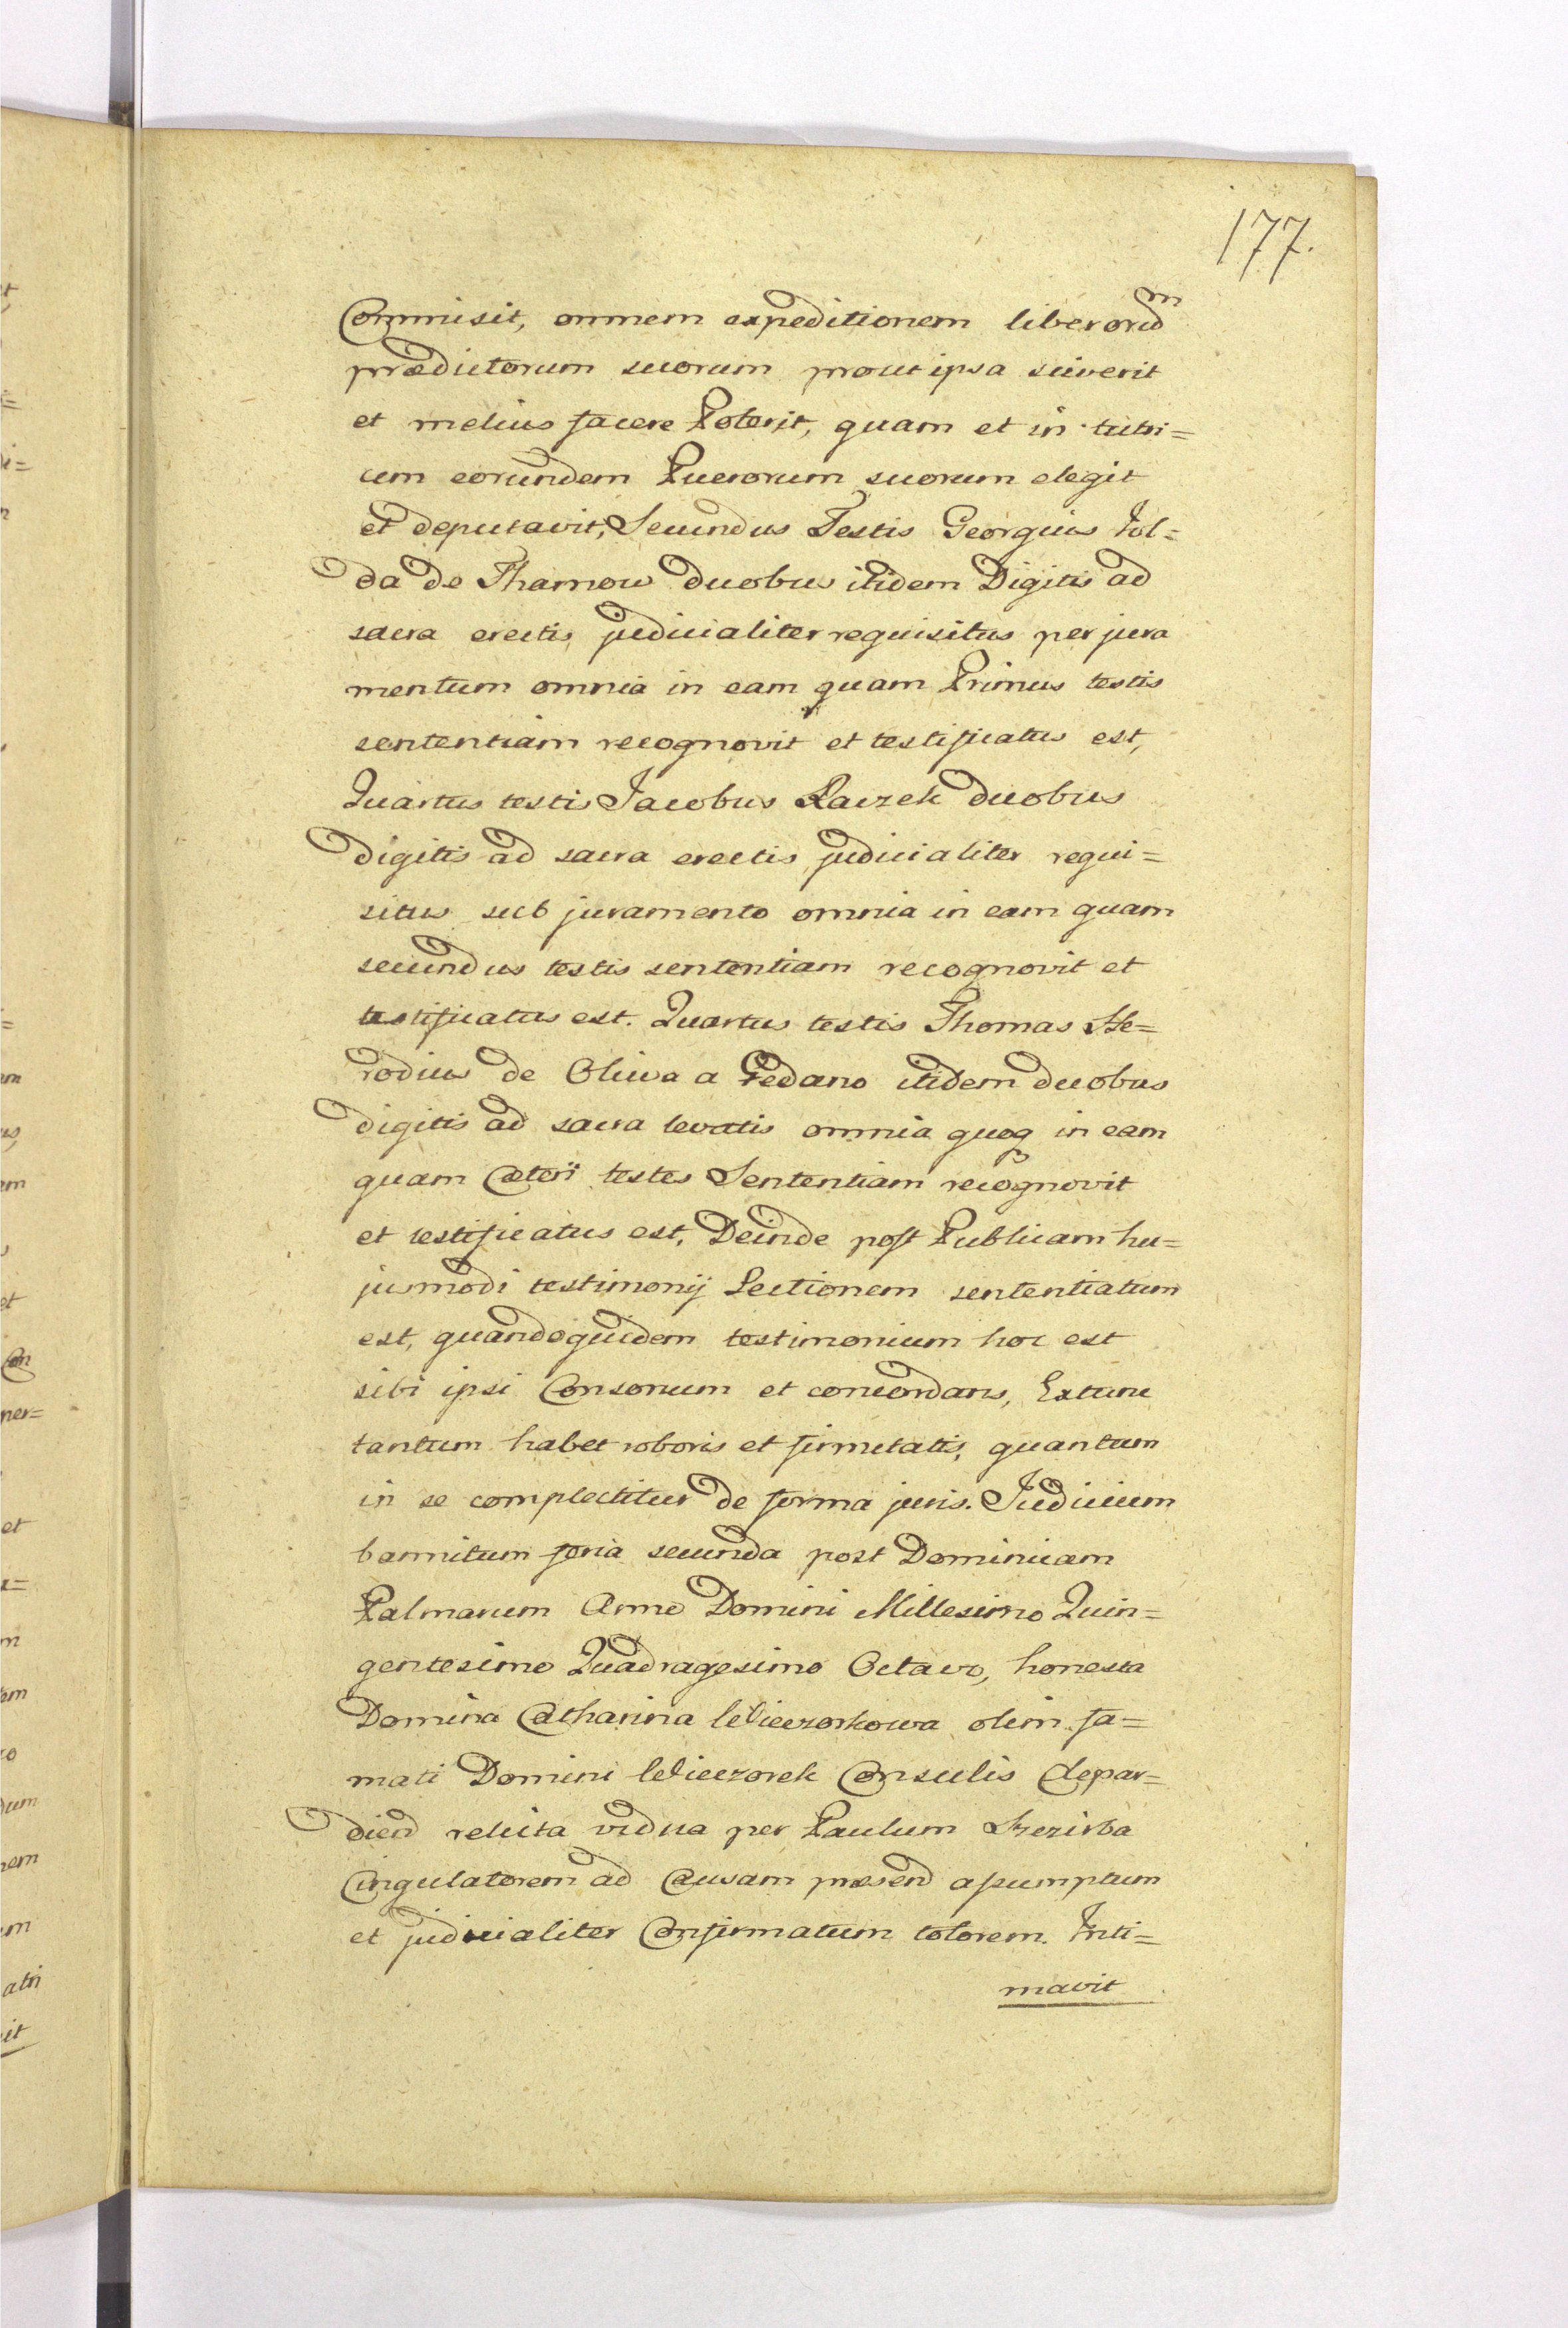 177.
Commisit, omnem expeditionem liberorum
prædictorum suorum prout ipsa sciverit
et melius facere Poterit, quam et in tutri=
cem eorundem Puerorum suorum elegit
et deputavit, Secundus Testis Georgius Jol=
da de Tharnow duobus itidem Digitis ad
sacra erectis judicialiter requisitus per jura
mentum omnia in eam quam Primus testis
sententiam recognovit et testificatus est,
Quartus testis Jacobus Raczek duobus
digitis ad sacra erectis judicialiter requi=
situs sub juramento omnia in eam quam
secundus testis sententiam recognovit et
testificatus est. Quartus testis Thomas He=
rodius de Oliwa a Gedano itidem duobus
digitis ad sacra levatis omnia quoq in eam
quam Cæteri testes Sententiam recognovit
et testificatus est, Deinde post Publicam hu=
jusmodi testimonij Lectionem sententiatum
est, quandoquidem testimonium hoc est
sibi ipsi Consonum et concordans, Extunc
tantum habet roboris et firmitatis, quantum
in se complectitur de forma juris. Judicium
bannitum feria secunda post Dominicam
Palmarum Anno Domini Millesimo Quin=
gentesimo Quadragesimo Octavo, honesta
Domina Catharina Wieczorkowa olim fa=
mati Domini Wieczorek Consulis Clepar=
dien relicta vidua per Paulum Szczirba
Cingulatorem ad Causam præsen assumptum
et judicialiter Confirmatum totorem. Inti=
mavit